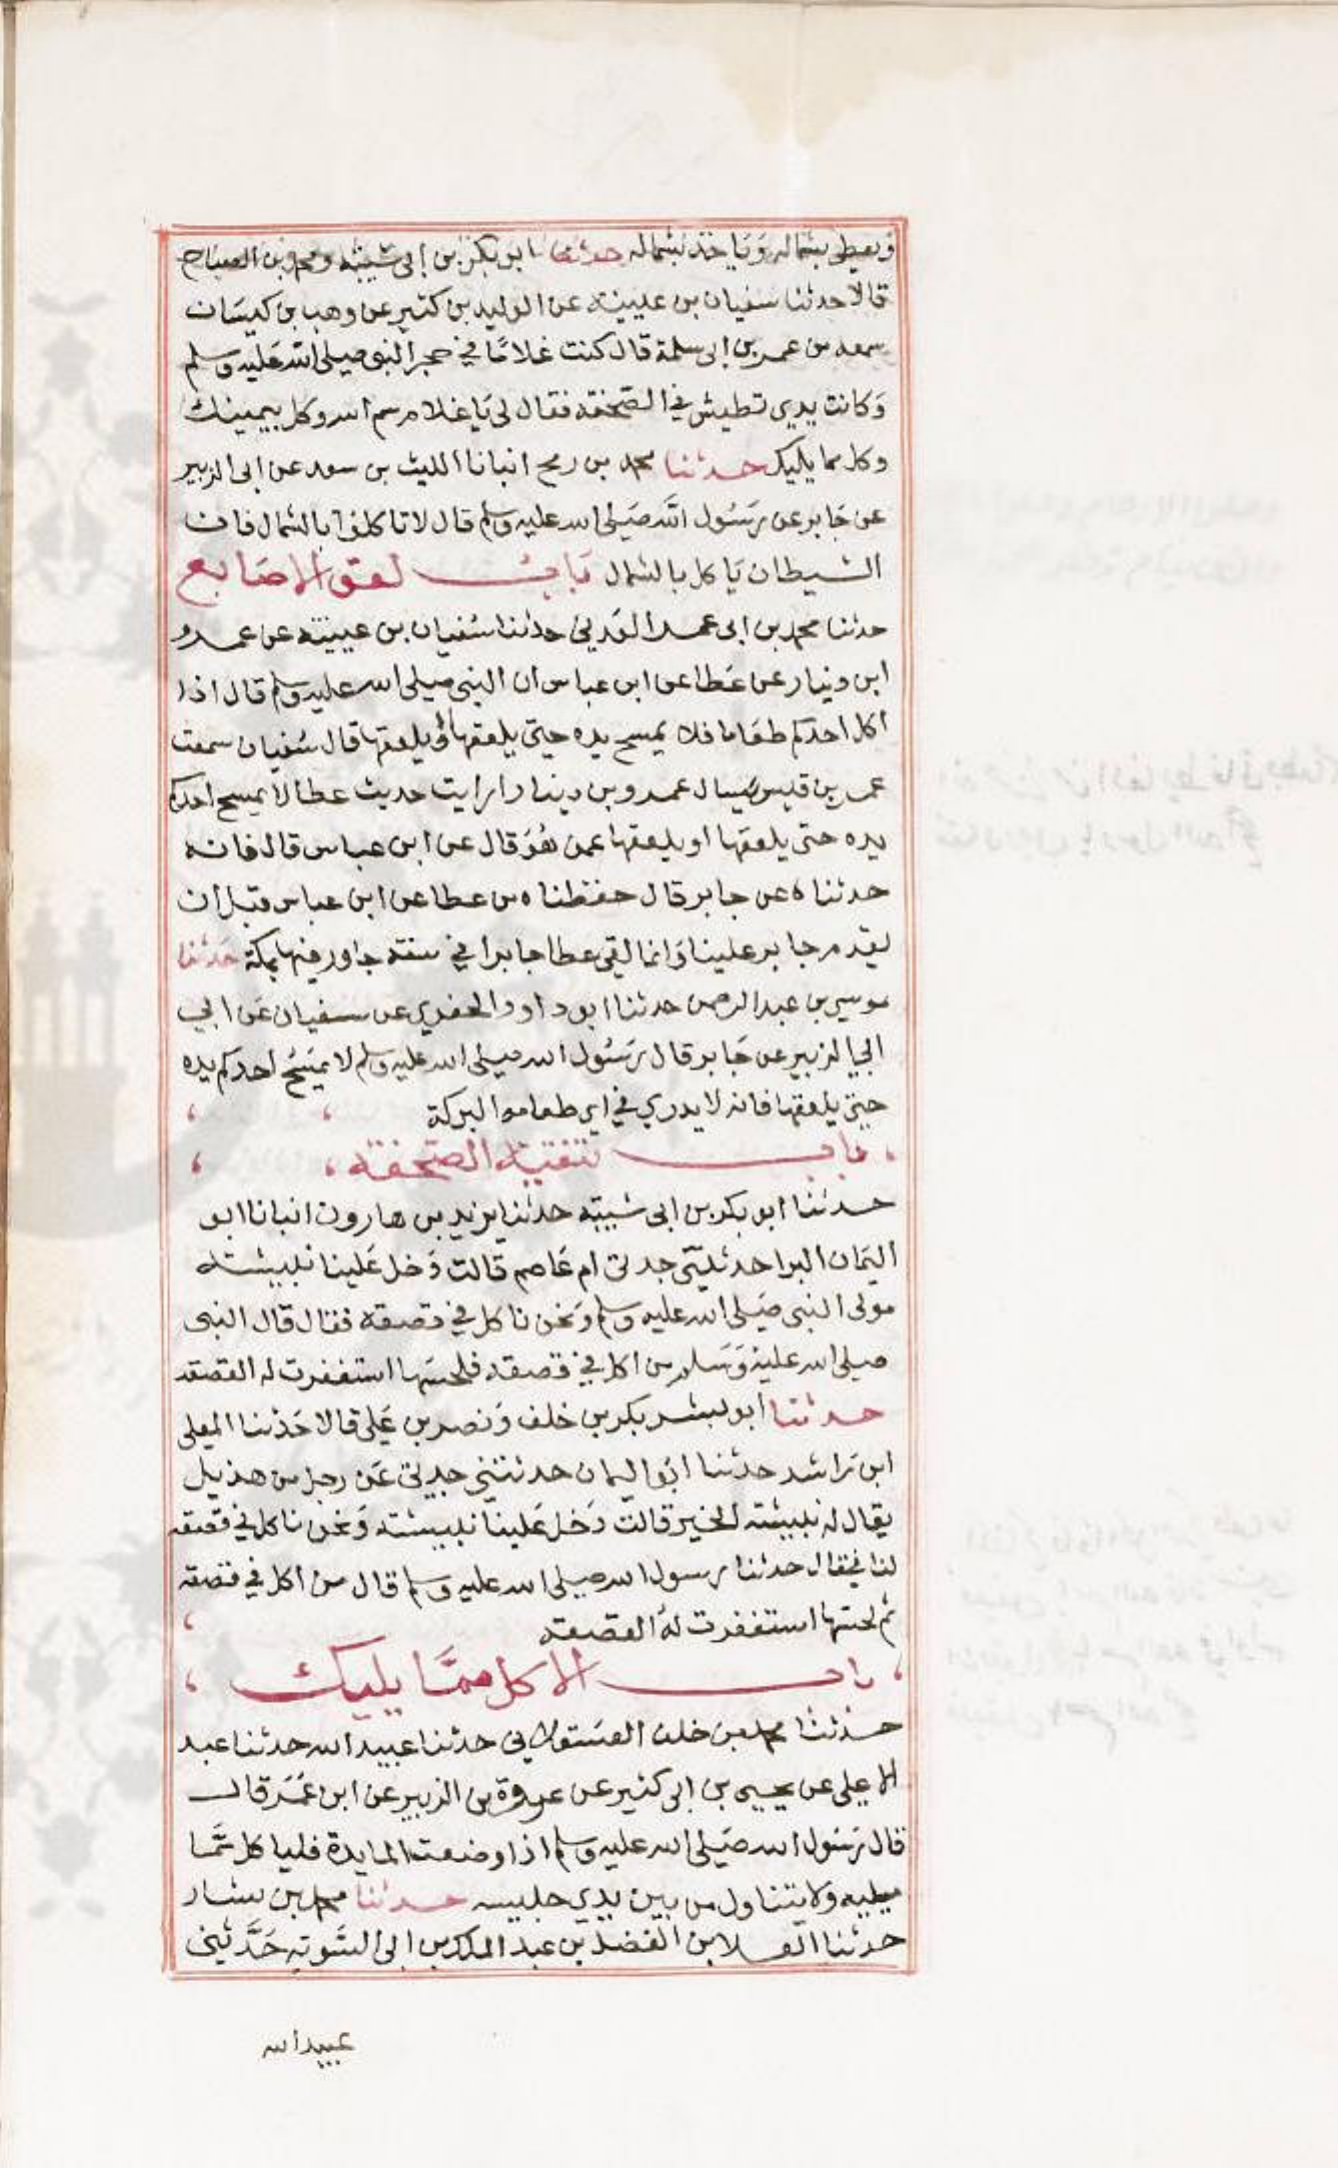 ويعطي بشماله وياخذ بشماله حدثنا ابو بكر بن ابي شيبة ومحمد بن الصباح
قالا حدثنا سفيان بن عيينة عن الوليد بن كثير عن وهب بن كيسان
سمعه من عمر بن ابي سلمة قال كنت غلامًا في حجر النبي صلى الله عليه وسلم
وكانت يدي تطيش في الصحفة فقال لي يا غلام سم الله وكل بيمينك
وكل مما يليك حدثنا محمد بن رمح انبانا الليث بن سعد عن ابي الزبير
عن جابر عن رسول الله صلى الله عليه وسلم قال لا تاكلوا بالشمال فان
الشيطان ياكل بالشمال باب لعق الاصابع
حدثنا محمد بن ابي عمر العدني حدثنا سفيان بن عيينة عن عمرو
ابن دينار عن عطا عن ابن عباس ان النبي صلى الله عليه وسلم قال اذا
اكل احدكم طعاما فلا يمسح يده حتى يلعقها أو يلعقها قال سفيان سمعت
عمر بن قيس يسال عمرو بن دينار ارايت حديث عطا لا يمسح احدكم
يده حتى يلعقها او يلعقها عمن هو قال عن ابن عباس قال فانه
حدثناه عن جابر قال حفظناه من عطا عن ابن عباس قبل ان
يقدم جابر علينا وانما لقي عطا جابرا في سنة جاور فيها بمكة حدثنا
موسى بن عبد الرحمن حدثنا ابو داود الحفري عن سفيان عن ابي
الزبير عن جابر قال رسول الله صلى الله عليه وسلم لا يمسح احدكم يده
حتى يلعقها فانه لا يدري في اي طعامه البركة
باب تنقية الصحفة
حدثنا ابو بكر بن ابي شيبة حدثنا يزيد بن هارون انبانا ابو
اليمان البرا حدثتني جدتي ام عاصم قالت دخل علينا نبيشة
مولى النبي صلى الله عليه وسلم ونحن ناكل في قصعة فقال قال النبي
صلى الله عليه وسلم من اكل في قصعة فلحسها استغفرت له القصعة
حدثنا ابو بشر بكر بن خلف ونصر بن علي قالا حدثنا المعلى
ابن راشد حدثنا ابو اليمان حدثتني جدتي عن رجل من هذيل
يقال له نبيشة الخير قالت دخل علينا نبيشة ونحن ناكل في قصعة
لنا فقال حدثنا رسول الله صلى الله عليه وسلم قال من اكل في قصعة
ثم لحسها استغفرت له القصعة
باب الاكل مما يليك
حدثنا محمد بن خلف العسقلاني حدثنا عبيد الله حدثنا عبد
الاعلى عن يحيى بن ابي كثير عن عروة بن الزبير عن ابن عمر قال
قال رسول الله صلى الله عليه وسلم اذا وضعت المايدة فلياكل مما
يليه ولا يتناول من بين يدي جليسه حدثنا محمد بن بشار
حدثنا العلا بن الفضل بن عبد الملك بن ابي السوية حدثني
عبيد الله